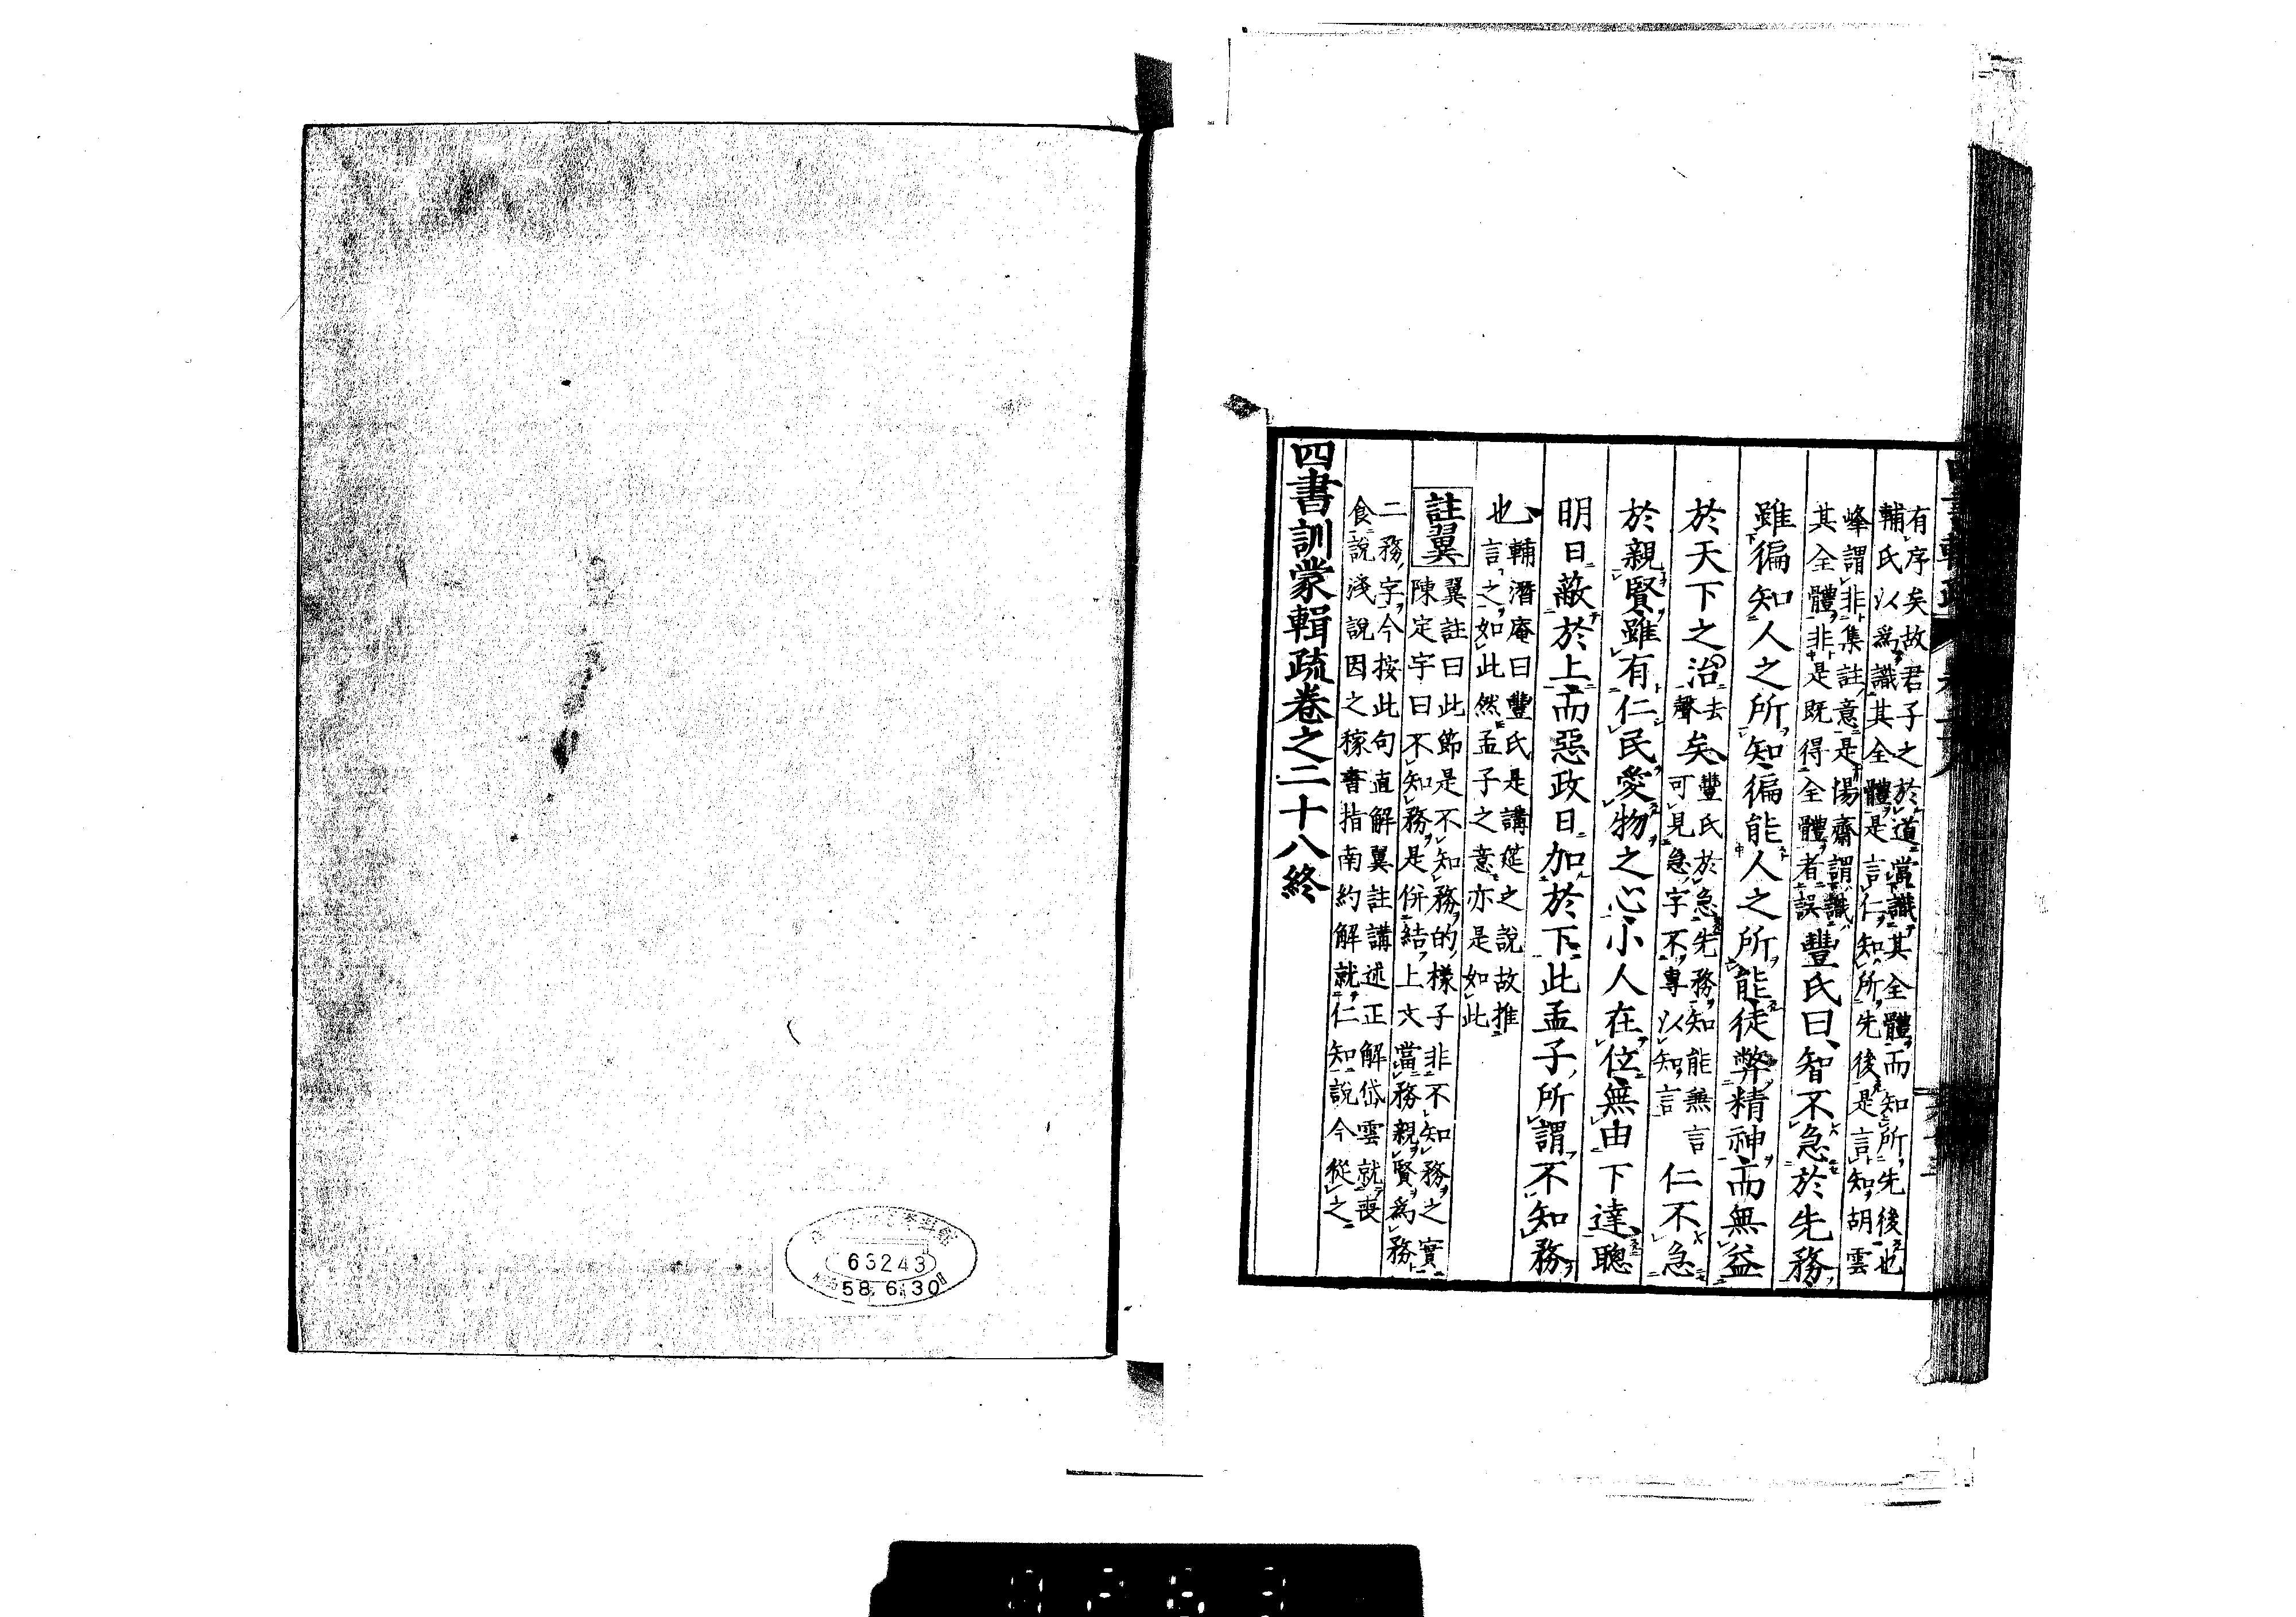 有序矣故君子之於道當識其全體而知所先後也
輔氏以爲識其全體是言仁知所先後是言知胡雲
峰謂非集註意是陽齋謂識
其全體非是既得全體者誤豐氏曰智不急於先務
雖徧知人之所知徧能人之所能徒弊精神而無益
於天下之治去聲矣豐氏於急先務知能無言可見急字不專以知言仁不急
於親賢雖有仁民愛物之心小人在位無由下達聰
明日蔽於上而惡政日加於下此孟子所謂不知務
也輔潛庵曰豐氏是講筵之說故推
言之如此然孟子之意亦是如此
註翼翼註曰此節是不知務的樣子非不知務之實
陳定宇曰不知務是併結上文當務親賢爲務
二務字今按此句直解翼註講述正解岱雲就喪
食說淺說因之稼書指南約解就仁知說今從之
四書訓蒙輯疏卷之二十八終
63243
58.6.30